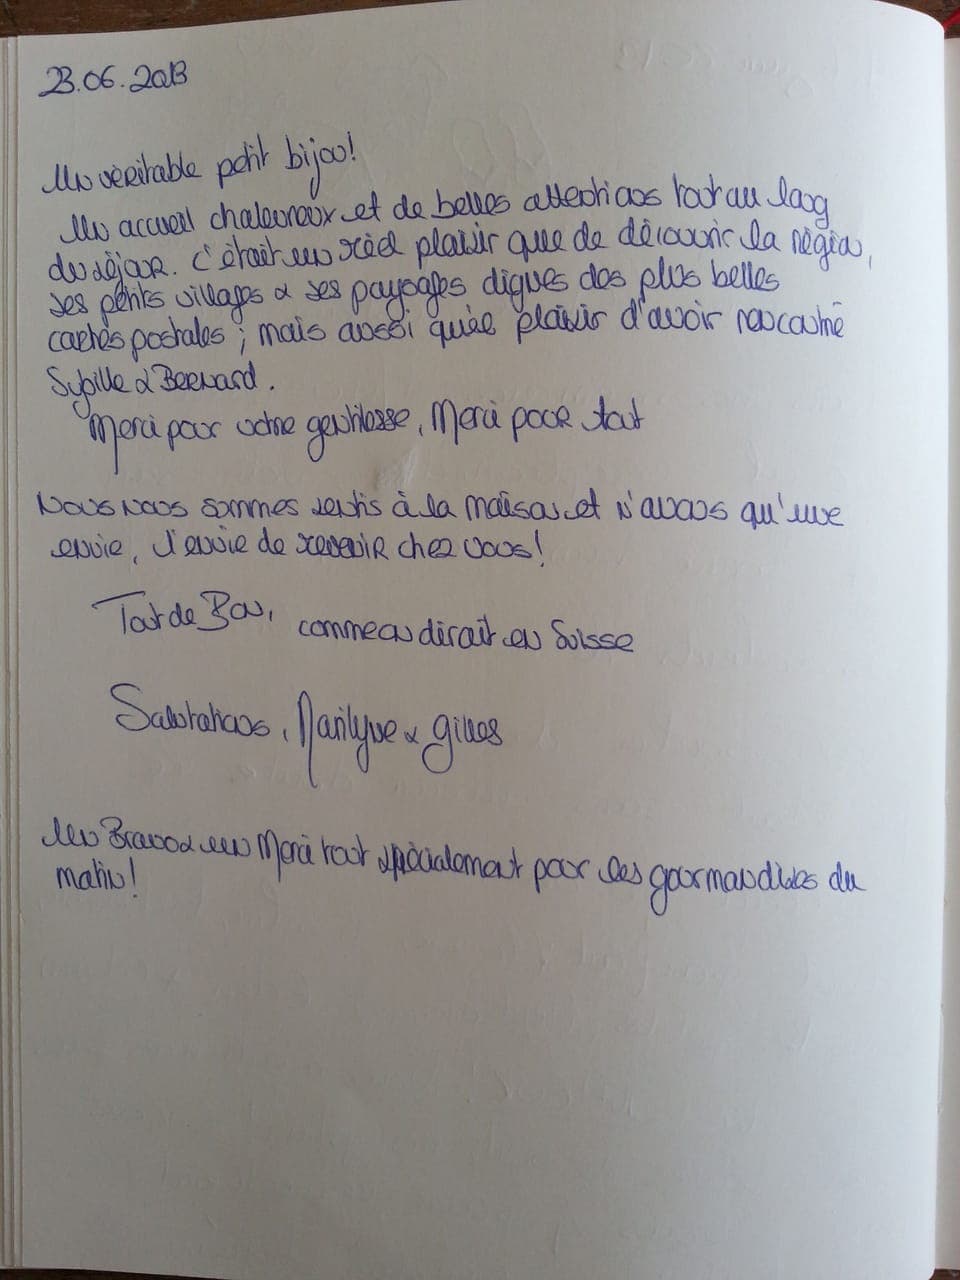 23.06.2013
Un véritable petit bijou!
Un accueil chaleureux et de belles attentions tout au long
du séjour. C'était un réel plaisir que de découvrir la région,
ses petits villages & ses paysages dignes des plus belles
cartes postales; mais aussi quel plaisir d'avoir rencontré
Sybille & Bernard.
Merci pour votre gentillesse, Merci pour tout
Nous nous sommes sentis à la maison et n'avons qu'une
envie, l'envie de revenir chez vous!
Tout de Bon, comme on dirait en Suisse
Salutations, Marilyne & Gilles
Un Bravo & un Merci tout spécialement pour les gourmandises du
matin!